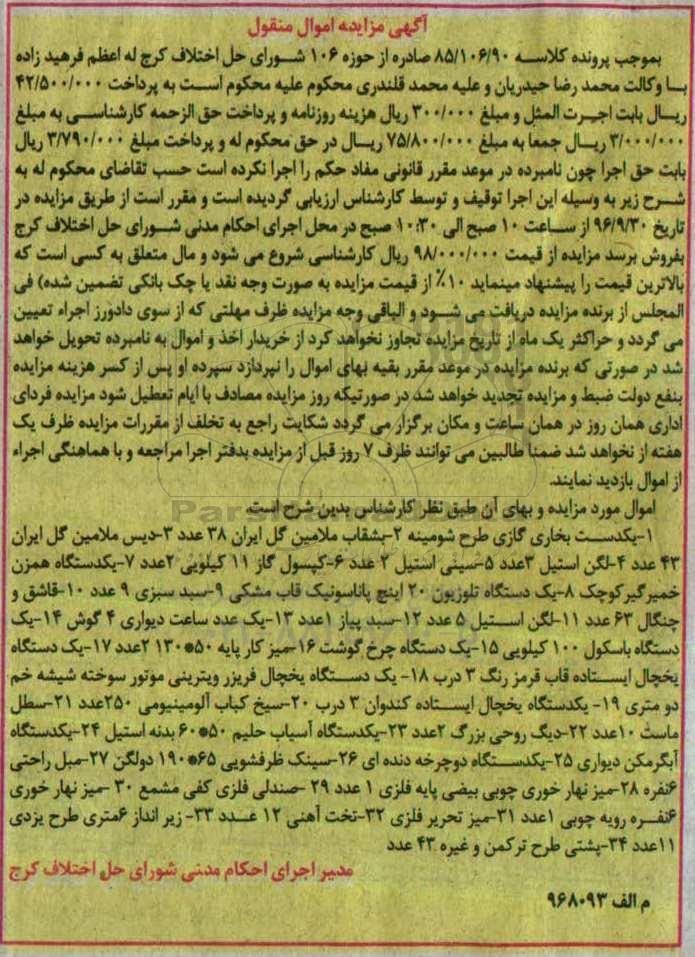 آگهی مزایده اموال منقول
بموجب پرونده کلاسه ۸۵/۱۰۶/۹۰ صادره از حوزه ۱۰۶ شورای حل اختلاف کرج له اعظم فرهید زاده
با وکالت محمد رضا حیدریان و علیه محمد قلندری محکوم علیه محکوم است به پرداخت ۴۲/۵۰۰/۰۰۰
ریال بابت اجرت المثل و مبلغ ۳۰۰/۰۰۰ ریال هزینه روزنامه و پرداخت حق الزحمه کارشناسی به مبلغ
۳/۰۰۰/۰۰۰ ریال جمعا به مبلغ ۷۵/۸۰۰/۰۰۰ ریال در حق محکوم له و پرداخت مبلغ ۳/۷۹۰/۰۰۰ ریال
بابت حق اجرا چون نامبرده در موعد مقرر قانونی مفاد حکم را اجرا نکرده است حسب تقاضای محکوم له به
شرح زیر به وسیله این اجرا توقیف و توسط کارشناس ارزیابی گردیده است و مقرر است از طریق مزایده در
تاریخ ۹۶/۹/۳۰ از ساعت ۱۰ صبح الی ۱۰:۳۰ صبح در محل اجرای احکام مدنی شورای حل اختلاف کرج
بفروش برسد مزایده از قیمت ۹۸/۰۰۰/۰۰۰ ریال کارشناسی شروع می شود و مال متعلق به کسی است که
بالاترین قیمت را پیشنهاد مینماید ۱۰٪ از قیمت مزایده به صورت وجه نقد یا چک بانکی تضمین شده) فی
المجلس از برنده مزایده دریافت می شود و الباقی وجه مزایده ظرف مهلتی که از سوی دادورز اجراء تعیین
می گردد و حراکثر یک ماه از تاریخ مزایده تجاوز نخواهد کرد از خریدار اخذ و اموال به نامبرده تحویل خواهد
شد در صورتی که برنده مزایده در موعد مقرر بقیه بهای اموال را نپردازد سپرده او پس از کسر هزینه مزایده
بنفع دولت ضبط و مزایده تجدید خواهد شد در صورتیکه روز مزایده مصادف با ایام تعطیل شود مزایده فردای
اداری همان روز در همان ساعت و مکان برگزار می گردد شکایت راجع به تخلف از مقررات مزایده ظرف یک
هفته از نخواهد شد ضمنا طالبین می توانند ظرف ۷ روز قبل از مزایده بدفتر اجرا مراجعه و با هماهنگی اجراء
از اموال بازدید نمایند.
اموال مورد مزایده و بهای آن طبق نظر کارشناس بدین شرح است
۱-یکدست بخاری گازی طرح شومینه ۲-بشقاب ملامین گل ایران ۳۸ عدد ۳-دیس ملامین گل ایران
۴۳ عدد ۴-لگن استیل ۳عدد ۵-سینی استیل ۲ عدد ۶-کپسول گاز ۱۱ کیلویی ۲عدد ۷-یکدستگاه همزن
خمیرگیرکوچک ۸-یک دستگاه تلوزیون ۲۰ اینچ پاناسونیک قاب مشکی ۹-سبد سبزی ۹ عدد ۱۰-قاشق و
چنگال ۶۳ عدد ۱۱-لگن استیل ۵ عدد ۱۲-سبد پیاز ۱عدد ۱۳-یک عدد ساعت دیواری ۴ گوش ۱۴-یک
دستگاه باسکول ۱۰۰ کیلویی ۱۵-یک دستگاه چرخ گوشت ۱۶-میز کار پایه ۵۰*۱۳۰ ۲عدد ۱۷-یک دستگاه
یخچال ایستاده قاب قرمز رنگ ۳ درب ۱۸- یک دستگاه یخچال فریزر ویترینی موتور سوخته شیشه خم
دو متری ۱۹- یکدستگاه یخچال ایستاده کندوان ۳ درب ۲۰-سیخ کباب آلومینیومی ۲۵۰عدد ۲۱-سطل
ماست ۱۰عدد ۲۲-دیگ روحی بزرگ ۲عدد ۲۳-یکدستگاه آسیاب حلیم ۵۰*۶۰ بدنه استیل ۲۴-یکدستگاه
آبگرمکن دیواری ۲۵-یکدستگاه دوچرخه دنده ای ۲۶-سینک ظرفشویی ۶۵*۱۹۰ دولگن ۲۷-مبل راحتی
۶نفره ۲۸-میز نهار خوری چوبی بیضی پایه فلزی ۱ عدد ۲۹ -صندلی فلزی کفی مشمع ۳۰ -میز نهار خوری
۶نفره رویه چوبی ۱عدد ۳۱-میز تحریر فلزی ۳۲-تخت آهنی ۱۲ عدد ۳۳- زیر انداز ۶متری طرح یزدی
۱۱عدد ۳۴-پشتی طرح ترکمن و غیره ۴۳ عدد
مدیر اجرای احکام مدنی شورای حل اختلاف کرج
م الف ۹۶۸۰۹۳